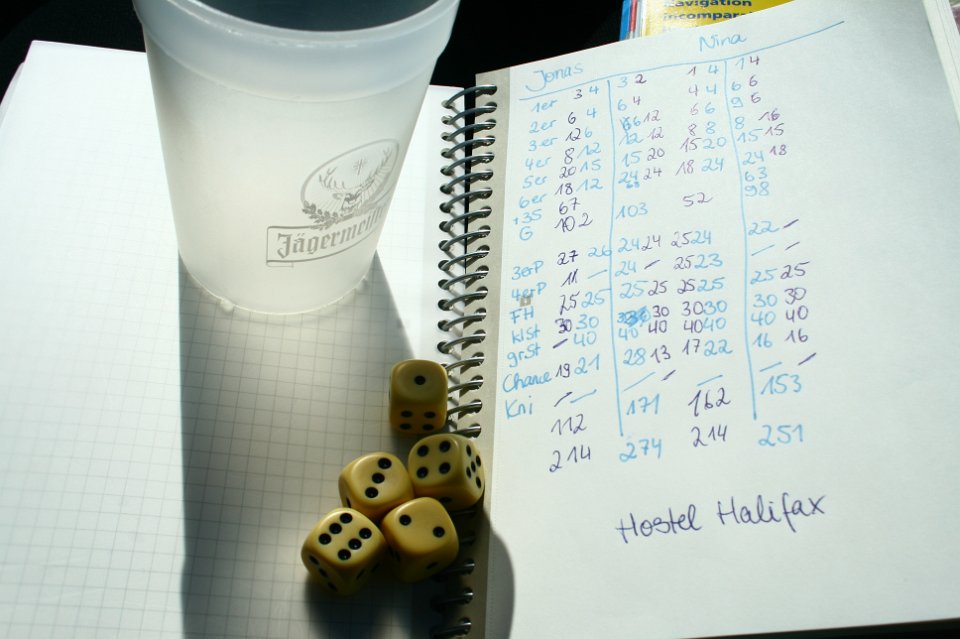 Navigation
incompar
Jägermeister
Jonas Nina
1er 3 4 3 2 1 4 1 4
2er 6 4 6 4 4 4 6 6
3er 12 6 6 12 6 6 9 6
4er 8 12 12 12 8 8 8 16
5er 20 15 15 20 15 20 15 15
6er 18 12 24 24 18 24 24 18
+35 67 63
G 102 103 52 98
3erP 27 26 24 24 25 24 22 –
4erP 11 – 24 – 25 23 – –
FH 25 25 25 25 25 25 25 25
klSt 30 30 30 30 30 30 30
grSt – 40 40 40 40 40 40 40
Chance 19 21 28 13 17 22 16 16
Kni – – – – – – –
112 171 162 153
214 274 214 251
Hostel Halifax